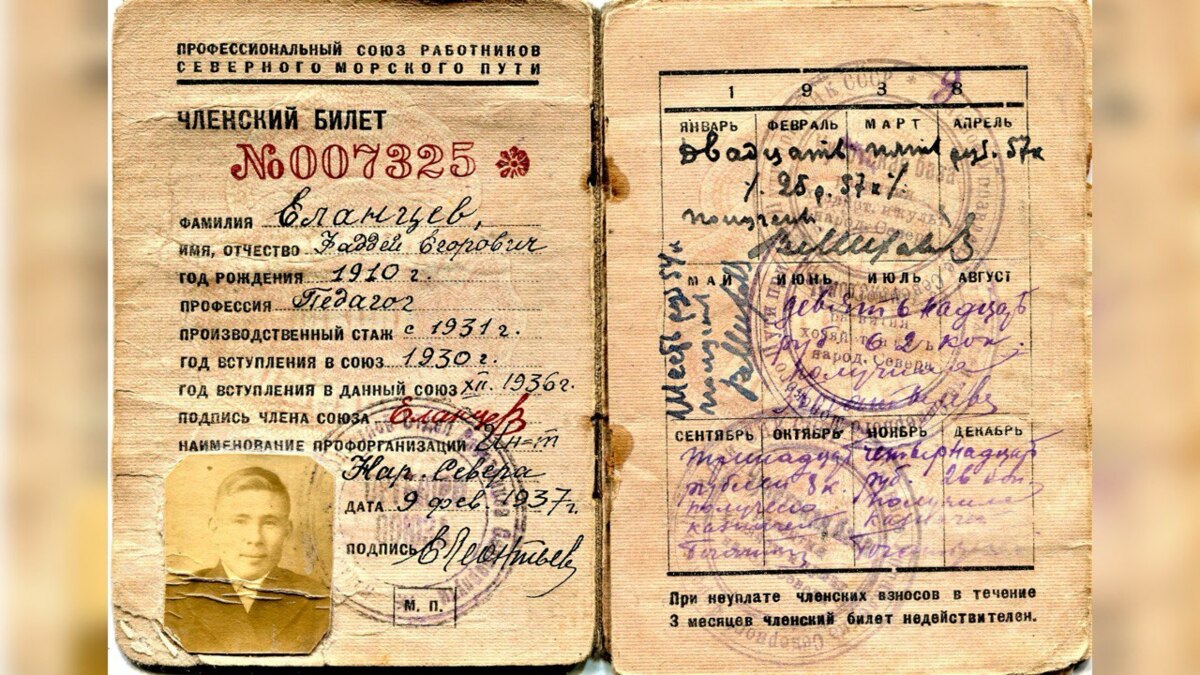 ПРОФЕССИОНАЛЬНЫЙ СОЮЗ РАБОТНИКОВ
СЕВЕРНОГО МОРСКОГО ПУТИ
ЧЛЕНСКИЙ БИЛЕТ
№007325
ФАМИЛИЯ Еланцев,
ИМЯ, ОТЧЕСТВО Фаддей Егорович
ГОД РОЖДЕНИЯ 1910 г.
ПРОФЕССИЯ Педагог
ПРОИЗВОДСТВЕННЫЙ СТАЖ с 1931 г.
ГОД ВСТУПЛЕНИЯ В СОЮЗ 1930 г.
ГОД ВСТУПЛЕНИЯ В ДАННЫЙ СОЮЗ XII. 1936 г.
ПОДПИСЬ ЧЛЕНА СОЮЗА Еланцев
НАИМЕНОВАНИЕ ПРОФОРГАНИЗАЦИИ Ин-т
Нар. Севера
ДАТА 9 фев. 1937г.
ПОДПИСЬ Леонтьев
М. П.
1 9 3 8
ЯНВАРЬ ФЕВРАЛЬ МАРТ АПРЕЛЬ
двадцать пять руб. 57к
25 р. 57к
получены
МАЙ ИЮНЬ ИЮЛЬ АВГУСТ
Шесть руб 54 к
девятнадцать
руб 02 коп.
получила
СЕНТЯБРЬ ОКТЯБРЬ НОЯБРЬ ДЕКАБРЬ
тринадцать четырнадцать
рублей 8 к. руб. 26 коп
получила
казначей
При неуплате членских взносов в течение
3 месяцев членский билет недействителен.